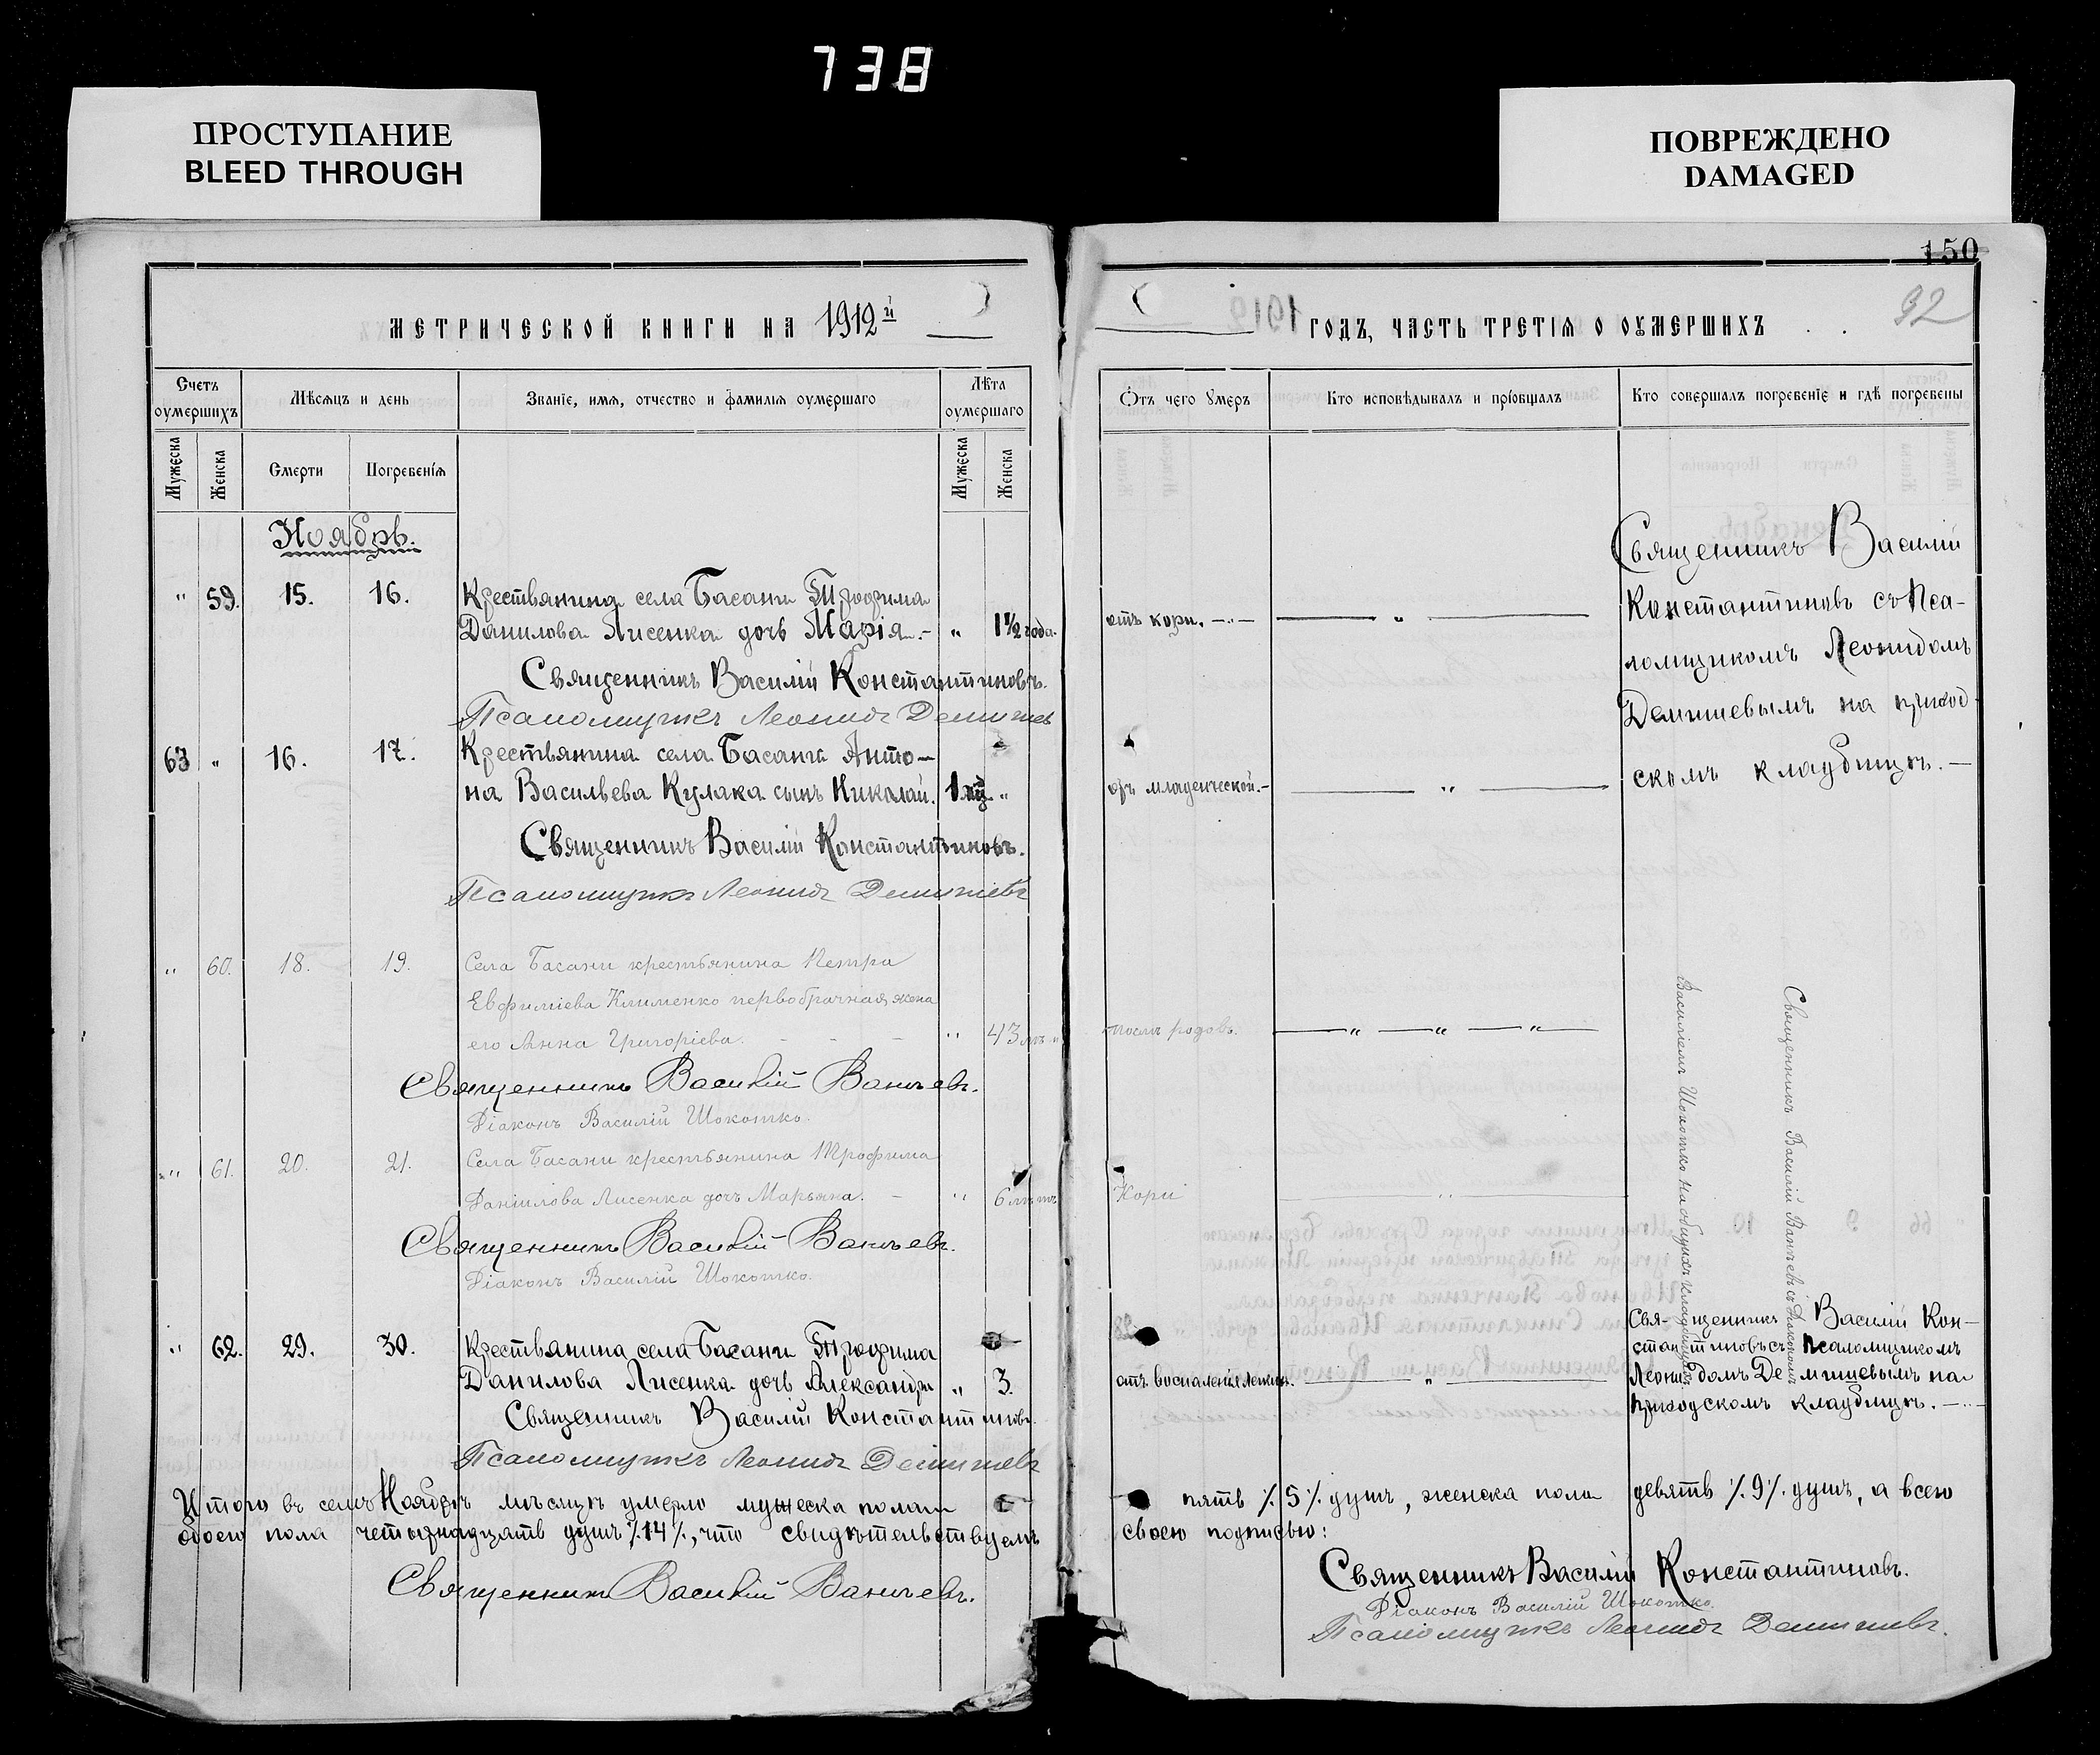 738
ПРОСТУПАНИЕ
BLEED THROUGH
ПОВРЕЖДЕНО
DAMAGED
МЕТРИЧЕСКОЙ КНИГИ НА 1912й
Счетъ оумершихъ
Мѣсяцъ и день
Званіе, имя, отчество и фамилія оумершаго
Лѣта оумершаго
Мужеска
Женска
Смерти
Погребенія
Мужеска
Женска
Ноябрь.
" 59. 15. 16. Крестьянина села Басани Трофима
Данилова Лисенка дочь Марія.- " 1½ года.
Священникъ Василій Константиновъ.
Псаломщикъ Леонидъ Демишев
63 " 16. 17. Крестьянина села Басани Анто-
на Васильева Кулака сынъ Николай. 1 "
Священникъ Василій Константиновъ.
Псаломщикъ Леонидъ Демишевъ
" 60. 18. 19. Села Басани крестьянина Петра
Евфиміева Клименко первобрачная жена
его Анна Григоріева. - - - " 43
Священникъ Василій Ваньевъ.
Діаконъ Василій Шокотко.
" 61. 20. 21. Села Басани крестьянина Трофима
Даніилова Лисенка дочь Марьяна. - " 6 лѣтъ
Священникъ Василій Ваньевъ.
Діаконъ Василій Шокотко.
" 62. 29. 30. Крестьянина села Басани Трофима
Данилова Лисенка дочь Александра " 3.
Священникъ Василій Константиновъ.
Псаломщикъ Леонидъ Демишевъ
Итого въ семъ Ноябрѣ мѣсяцѣ умерло мужеска пола
обоего пола четырнадцать душъ ٪14٪, что свидѣтельствуемъ
Священникъ Василій Ваньевъ.
150
92
ГОДЪ, ЧАСТЬ ТРЕТІЯ О ОУМЕРШИХЪ
Отъ чего Умеръ
Кто исповѣдывалъ и пріобщалъ
Кто совершалъ погребеніе и гдѣ погребены
Священникъ Василій
Константиновъ съ Пса-
ломщикомъ Леонидомъ
Демишевымъ на приход-
скомъ кладбищѣ.-
отъ кори. - " -
"
отъ младенческой.-
"
послѣ родовъ.
" " "
Священникъ Василій Ваньевъ съ Діакономъ
Василіемъ Шокотко на общихъ кладбищахъ
Кори
"
отъ воспаленія легкихъ.
"
Священникъ Василій Кон-
стантиновъ съ Псаломщикомъ
Леонидомъ Демишевымъ на
приходскомъ кладбищѣ.-
пять ٪5٪ душъ, женска пола девять ٪9٪ душъ, а всего
своею подписью:
Священникъ Василій Константиновъ.
Діаконъ Василій Шокотко.
Псаломщикъ Леонидъ Демишевъ.